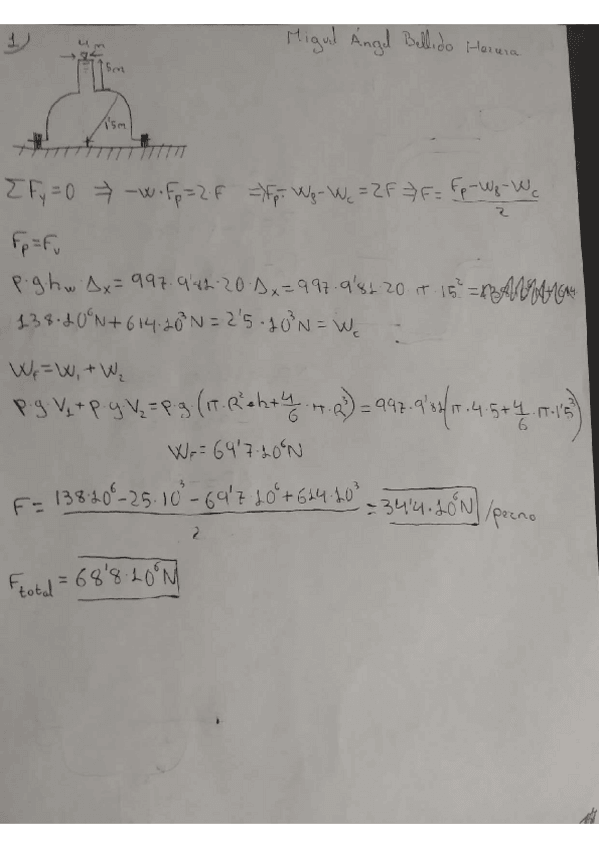 1) Miguel Ángel Bellido
4m
5m
1'5m
ΣFy=0 ⇒ -W·Fp=2F ⇒ Fp-W8-Wc=2F ⇒ F= (Fp-W8-Wc)/2
Fp=Fv
ρ·g·hw·Δx=997·9'81·20·Δx=997·9'81·20 π·15²=
138·10⁶N+614·10³N=2'5·10³N=Wc
WF=W1+W2
ρ·g·V1+ρ·g·V2=ρ·g·(π·R²·h+4/6·π·R³)=997·9'81(π·4·5+4/6·π·1'5³)
WF=69'7·10⁶N
F= (138·10⁶-25·10³-69'7·10⁶+614·10³)/2 = 34'4·10⁶N /perno
Ftotal=68'8·10⁶N